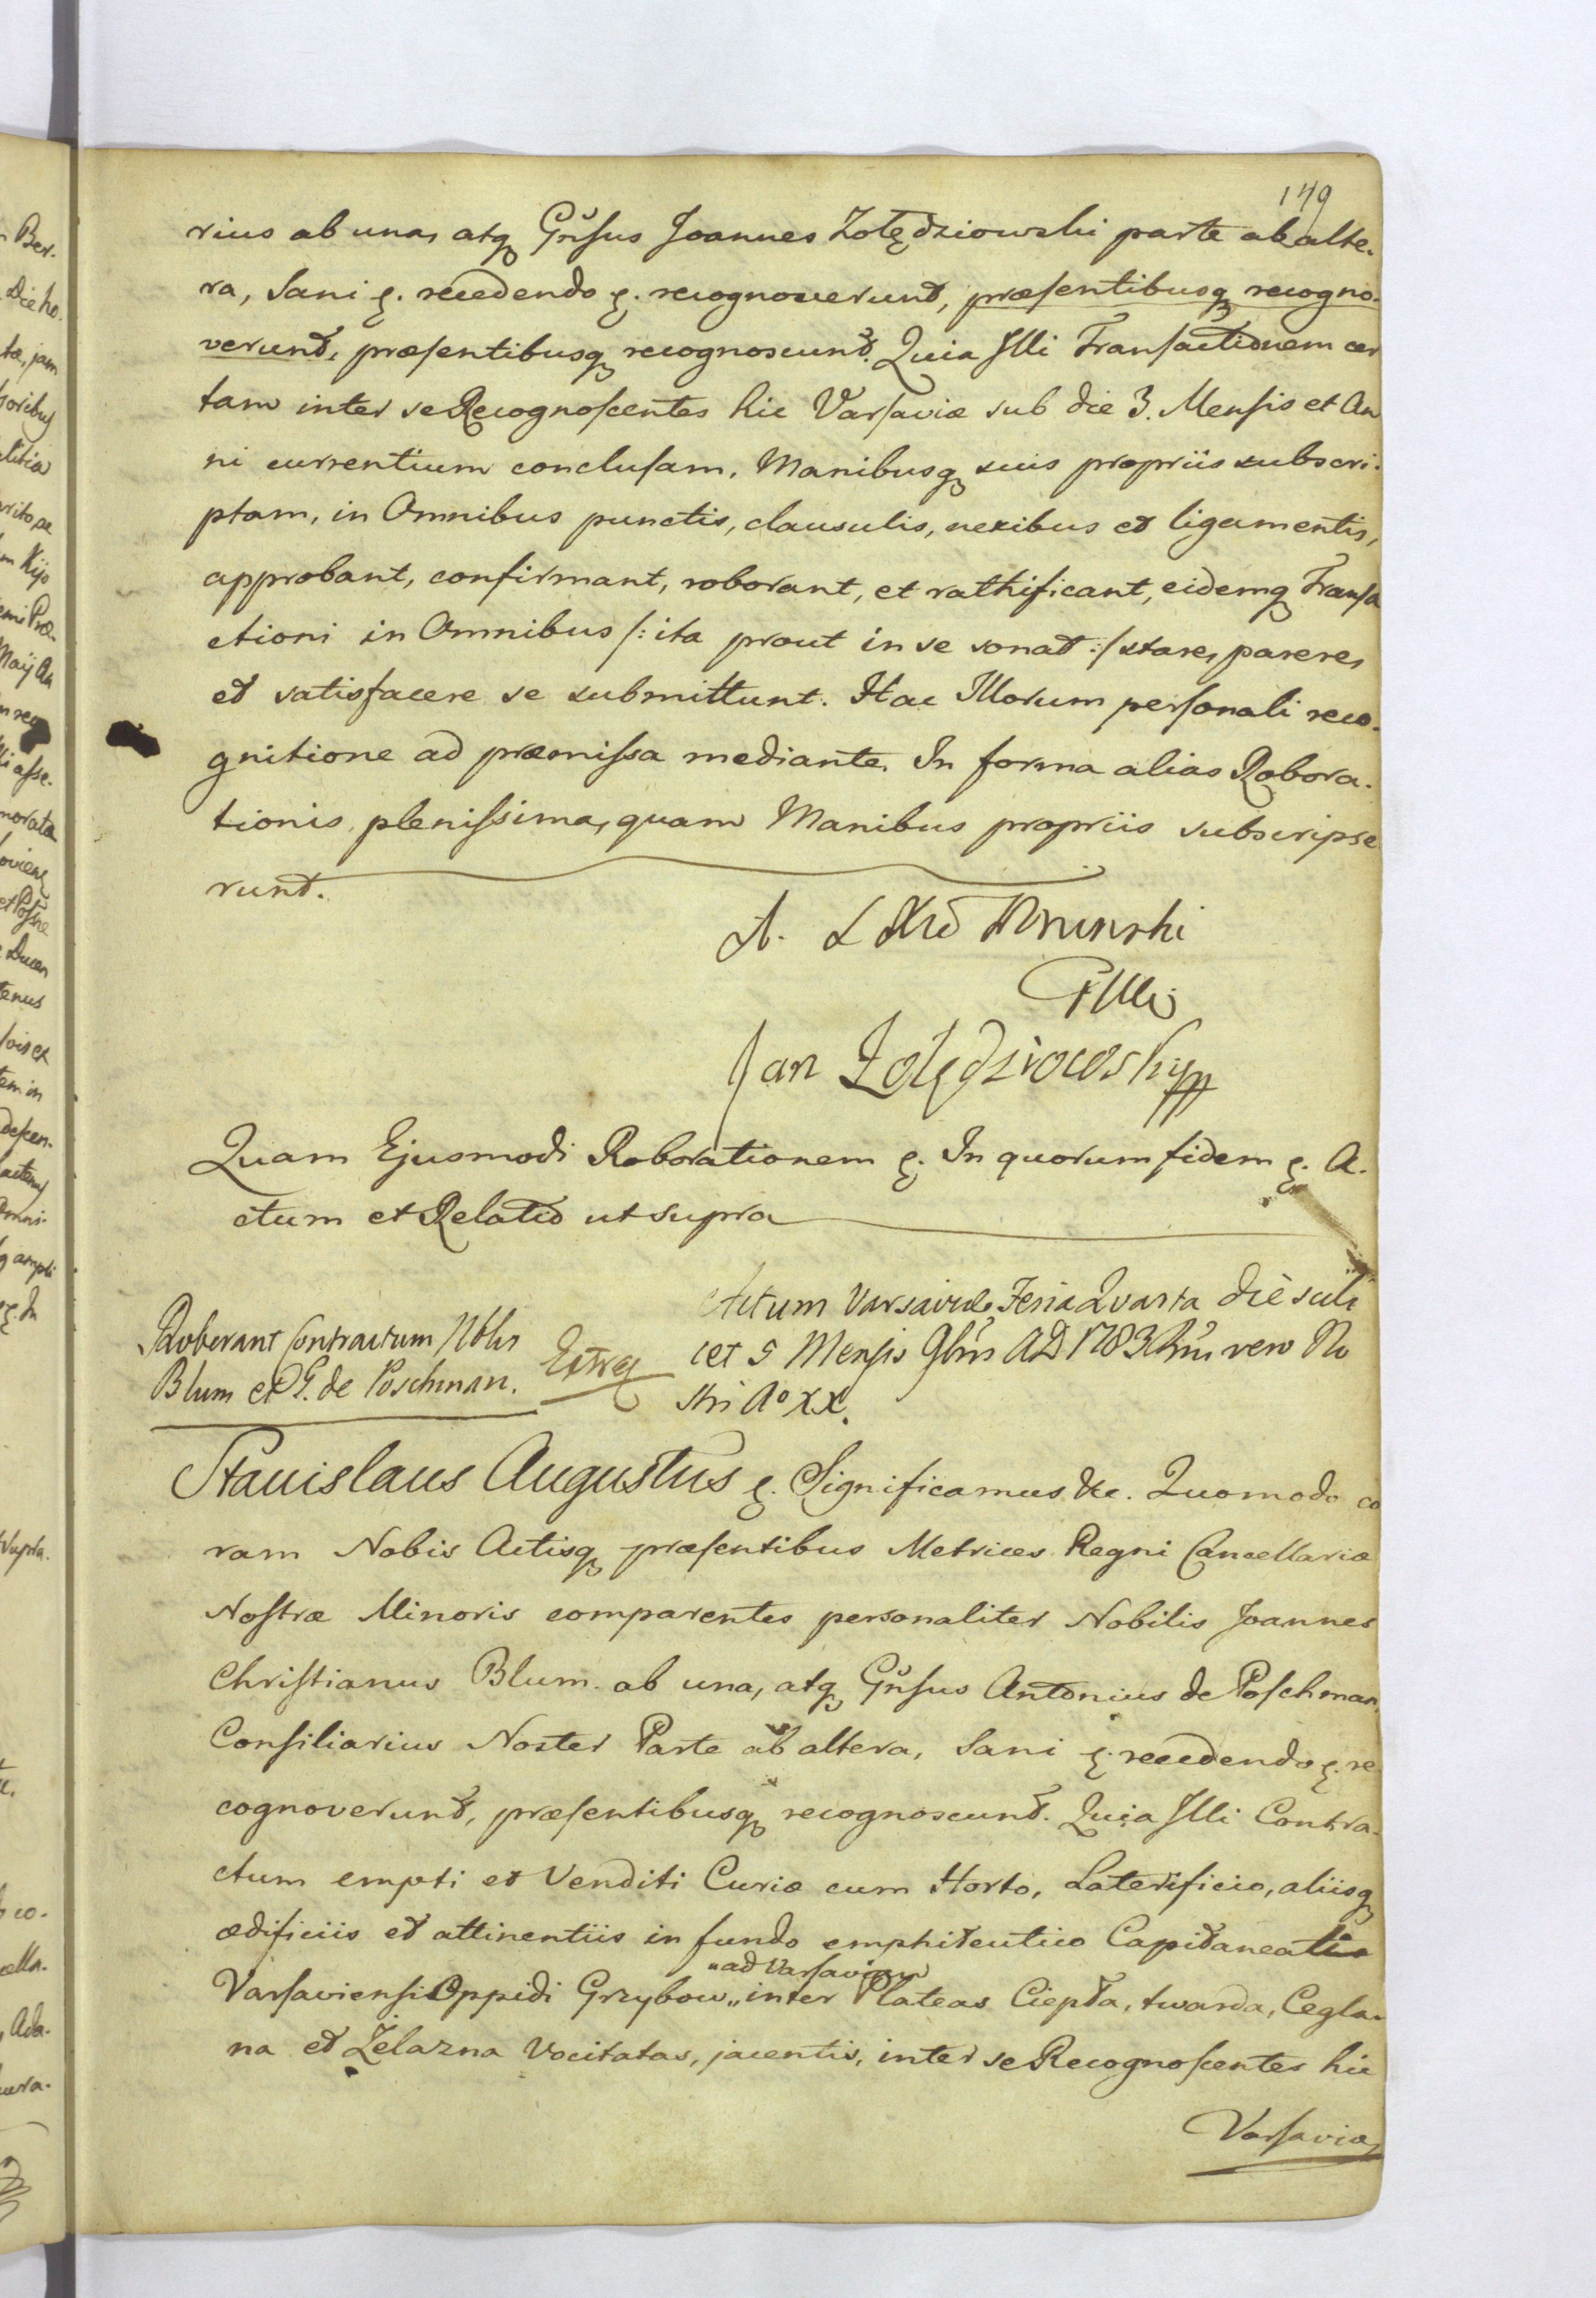 149
rius ab una, atq Gn̆sus Joannes Zołędziowski parte ab alte-
ra, Sani &. recedendo &. recognoverunt, præsentibusq recogno-
verunt, præsentibusq recognoscunt. Quia Illi Transactionem cer
tam inter se Recognoscentes hic Varsaviæ sub die 3. Mensis et An
ni currentium conclusam, Manibusq suis propriis subscri-
ptam, in Omnibus punctis, clausulis, nexibus et ligamentis,
approbant, confirmant, roborant, et rathificant, eidemq Transa
ctioni in Omnibus /: ita prout in se sonat :/ stare, parere,
et satisfacere se submittunt. Hac Illorum personali reco-
gnitione ad præmissa mediante. In forma alias Robora-
tionis plenissima, quam Manibus propriis subscripse
runt.
Jan Zołędziowski
Quam Ejusmodi Roborationem &. In quorum fidem &. A-
ctum et Relatio ut supra
Roborant Contractum Nblis
Blum et G. de Poschman.
Actum Varsaviæ Feria Quarta die scili
cet 5 Mensis 9bris AD 1783 Rni vero No
stri Aº XX.
Stanislaus Augustus &. Significamus &c. Quomodo co
ram Nobis Actisq præsentibus Metrices Regni Cancellariæ
Nostræ Minoris comparentes personaliter Nobilis Joannes
Christianus Blum ab una, atq Gn̆sus Antonius de Poschman,
Consiliarius Noster Parte ab altera, Sani &. recedendo &. re
cognoverunt, præsentibusq recognoscunt. Quia Illi Contra-
ctum empti et Venditi Curiæ cum Horto, Laterificio, aliisq
ædificiis et attinentiis in fundo emphiteutico Capitaneatis
"ad Varsaviam
Varsaviensi Oppidi Grzybow " inter Plateas Ciepła, twarda, Cegla-
na et Żelazna Vocitatas, jacentis, inter se Recognoscentes hic
Varsaviæ